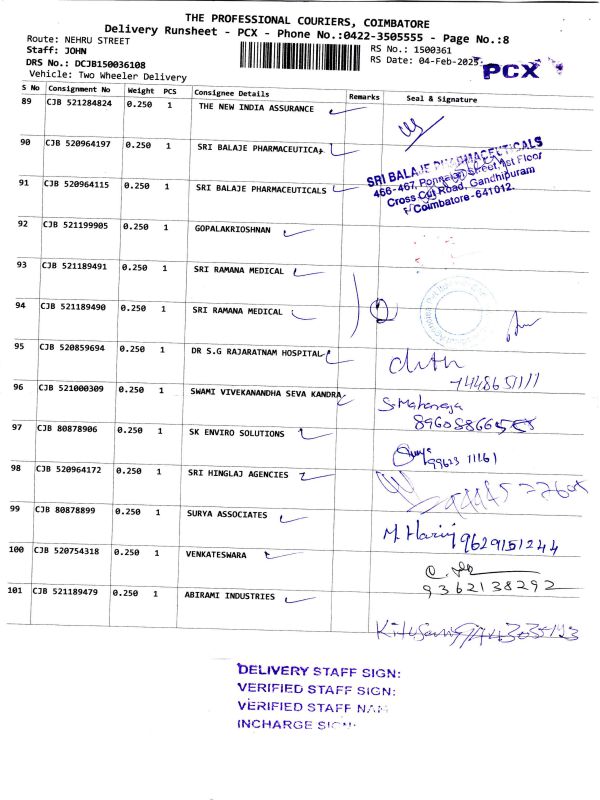 THE PROFESSIONAL COURIERS, COIMBATORE
Delivery Runsheet - PCX - Phone No.:0422-3505555 - Page No.:8
Route: NEHRU STREET
RS No.: 1500361
Staff: JOHN
RS Date: 04-Feb-2025
DRS No.: DCJB150036108
PCX
Vehicle: Two Wheeler Delivery
S No Consignment No Weight PCS Consignee Details Remarks Seal & Signature
89 CJB 521284824 0.250 1 THE NEW INDIA ASSURANCE
90 CJB 520964197 0.250 1 SRI BALAJE PHARMACEUTICA
SRI BALAJE PHARMACEUTICALS
466-467, Ponnaian Street, 1st Floor
Cross Cut Road, Gandhipuram
Coimbatore-641012.
91 CJB 520964115 0.250 1 SRI BALAJE PHARMACEUTICALS
92 CJB 521199905 0.250 1 GOPALAKRIOSHNAN
93 CJB 521189491 0.250 1 SRI RAMANA MEDICAL
94 CJB 521189490 0.250 1 SRI RAMANA MEDICAL
95 CJB 520859694 0.250 1 DR S.G RAJARATNAM HOSPITAL
96 CJB 521000309 0.250 1 SWAMI VIVEKANANDHA SEVA KANDRA
97 CJB 80878906 0.250 1 SK ENVIRO SOLUTIONS
98 CJB 520964172 0.250 1 SRI HINGLAJ AGENCIES
99 CJB 80878899 0.250 1 SURYA ASSOCIATES
M. Hariy 9629151244
100 CJB 520754318 0.250 1 VENKATESWARA
9362138292
101 CJB 521189479 0.250 1 ABIRAMI INDUSTRIES
DELIVERY STAFF SIGN:
VERIFIED STAFF SIGN:
VERIFIED STAFF NAM
INCHARGE SIGN: